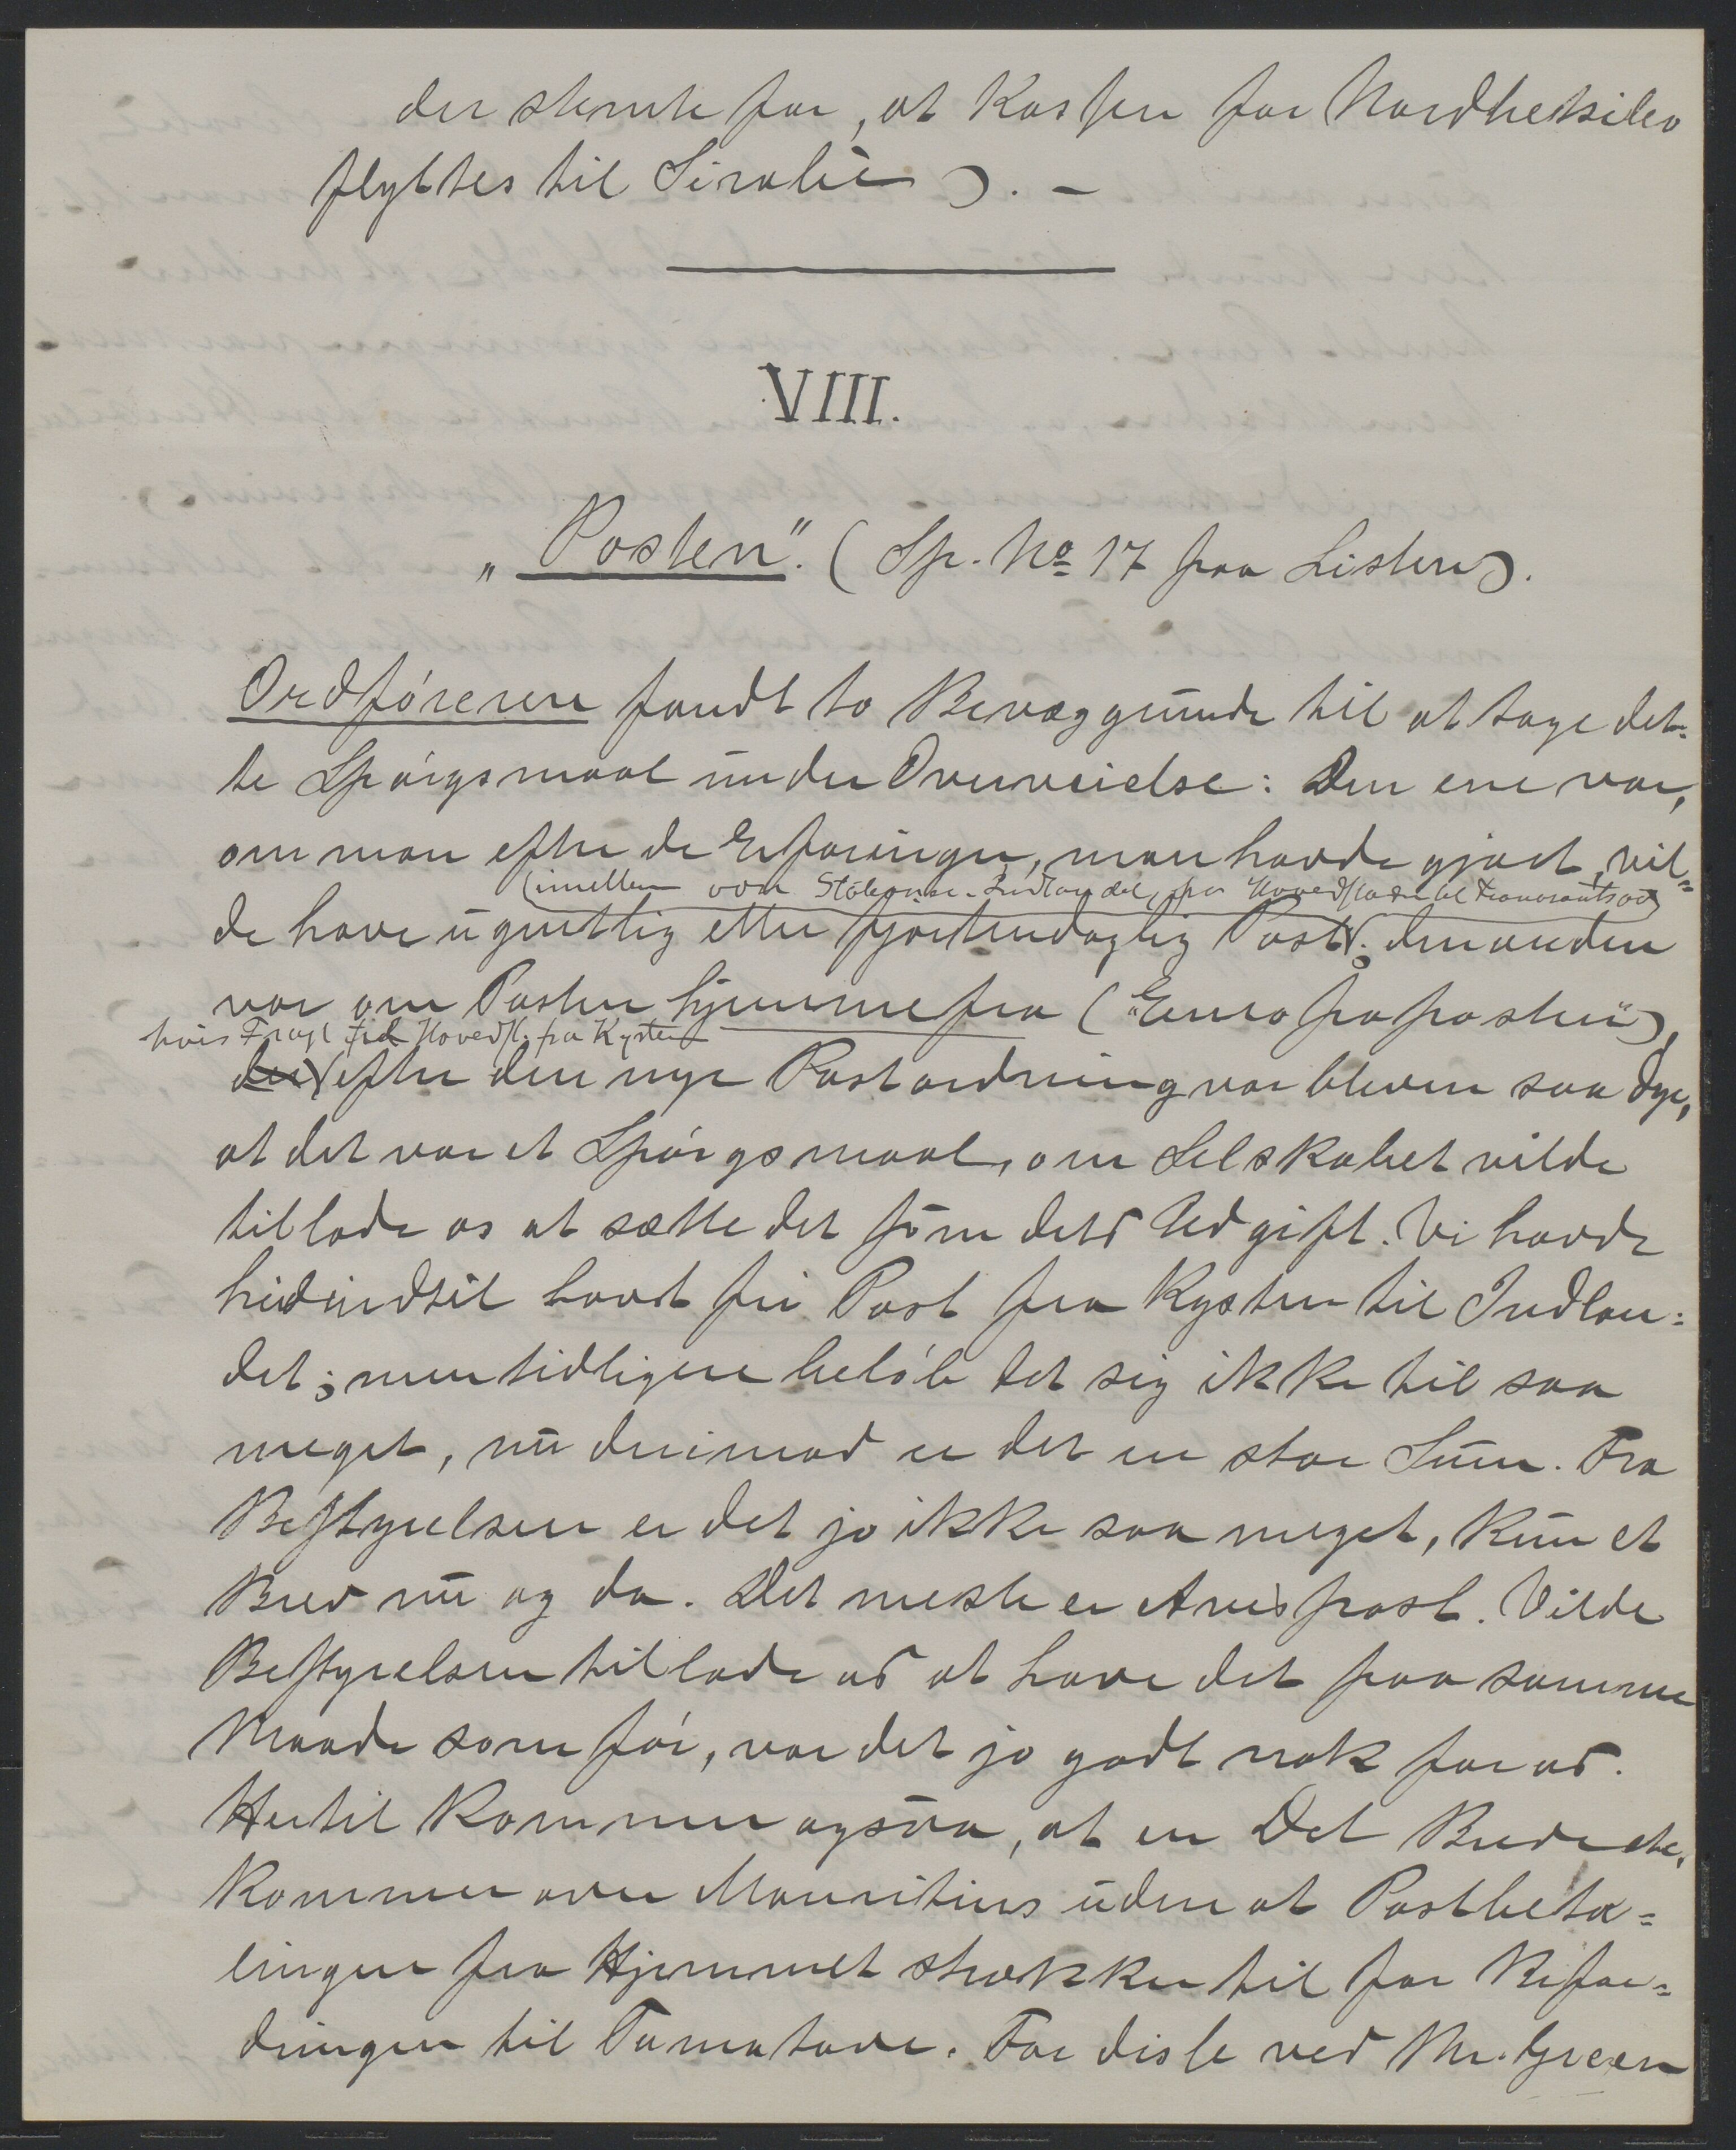 der stemte for, at Kassen for Nordbetsileo
flyttes til Sirabe). —
VIII.
„Posten". (Sp. No 17 paa Listen).
Ordføreren fandt to Bevæggrunde til at tage det-
te Spørgsmaal under Overveielse: Den ene var,
om man efter de Erfaringer, man havde gjort, vil-
(imellem vore Stationer i Indlandet, fra Hovedstaden til Fianarantsoa)
de have ugentlig eller fjortendaglig Post; den anden
var om Posten hjemmefra („Europaposten"),
hvis Fragt til Hovedst. fra Kysten
der efter den nye Postordning var bleven saa dyr,
at det var et Spørgsmaal, om Selskabet vilde
tillade os at sætte det som dets Udgift. Vi havde
hidindtil havt fri Post fra Kysten til Indlan-
det; men tidligere beløb det sig ikke til saa
meget, nu derimod er det en stor Sum. Fra
Bestyrelsen er det jo ikke saa meget, kun et
Brev nu og da. Det meste er Avispost. Vilde
Bestyrelsen tillade os at have det paa samme
Maade som før, var det jo godt nok for os.
Hertil kommer ogsaa, at en Del Breve etc.
kommer over Mauritius uden at Postbeta-
lingen fra Hjemmet strækker til for Befor-
dringen til Tamatave. For disse ved Mr. Green